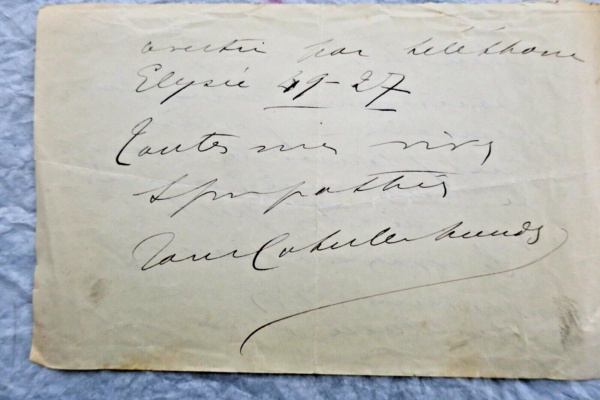 avertie par téléphone
Elysée 49-27
Toutes mes vives
sympathies
Jane Catulle Mendès